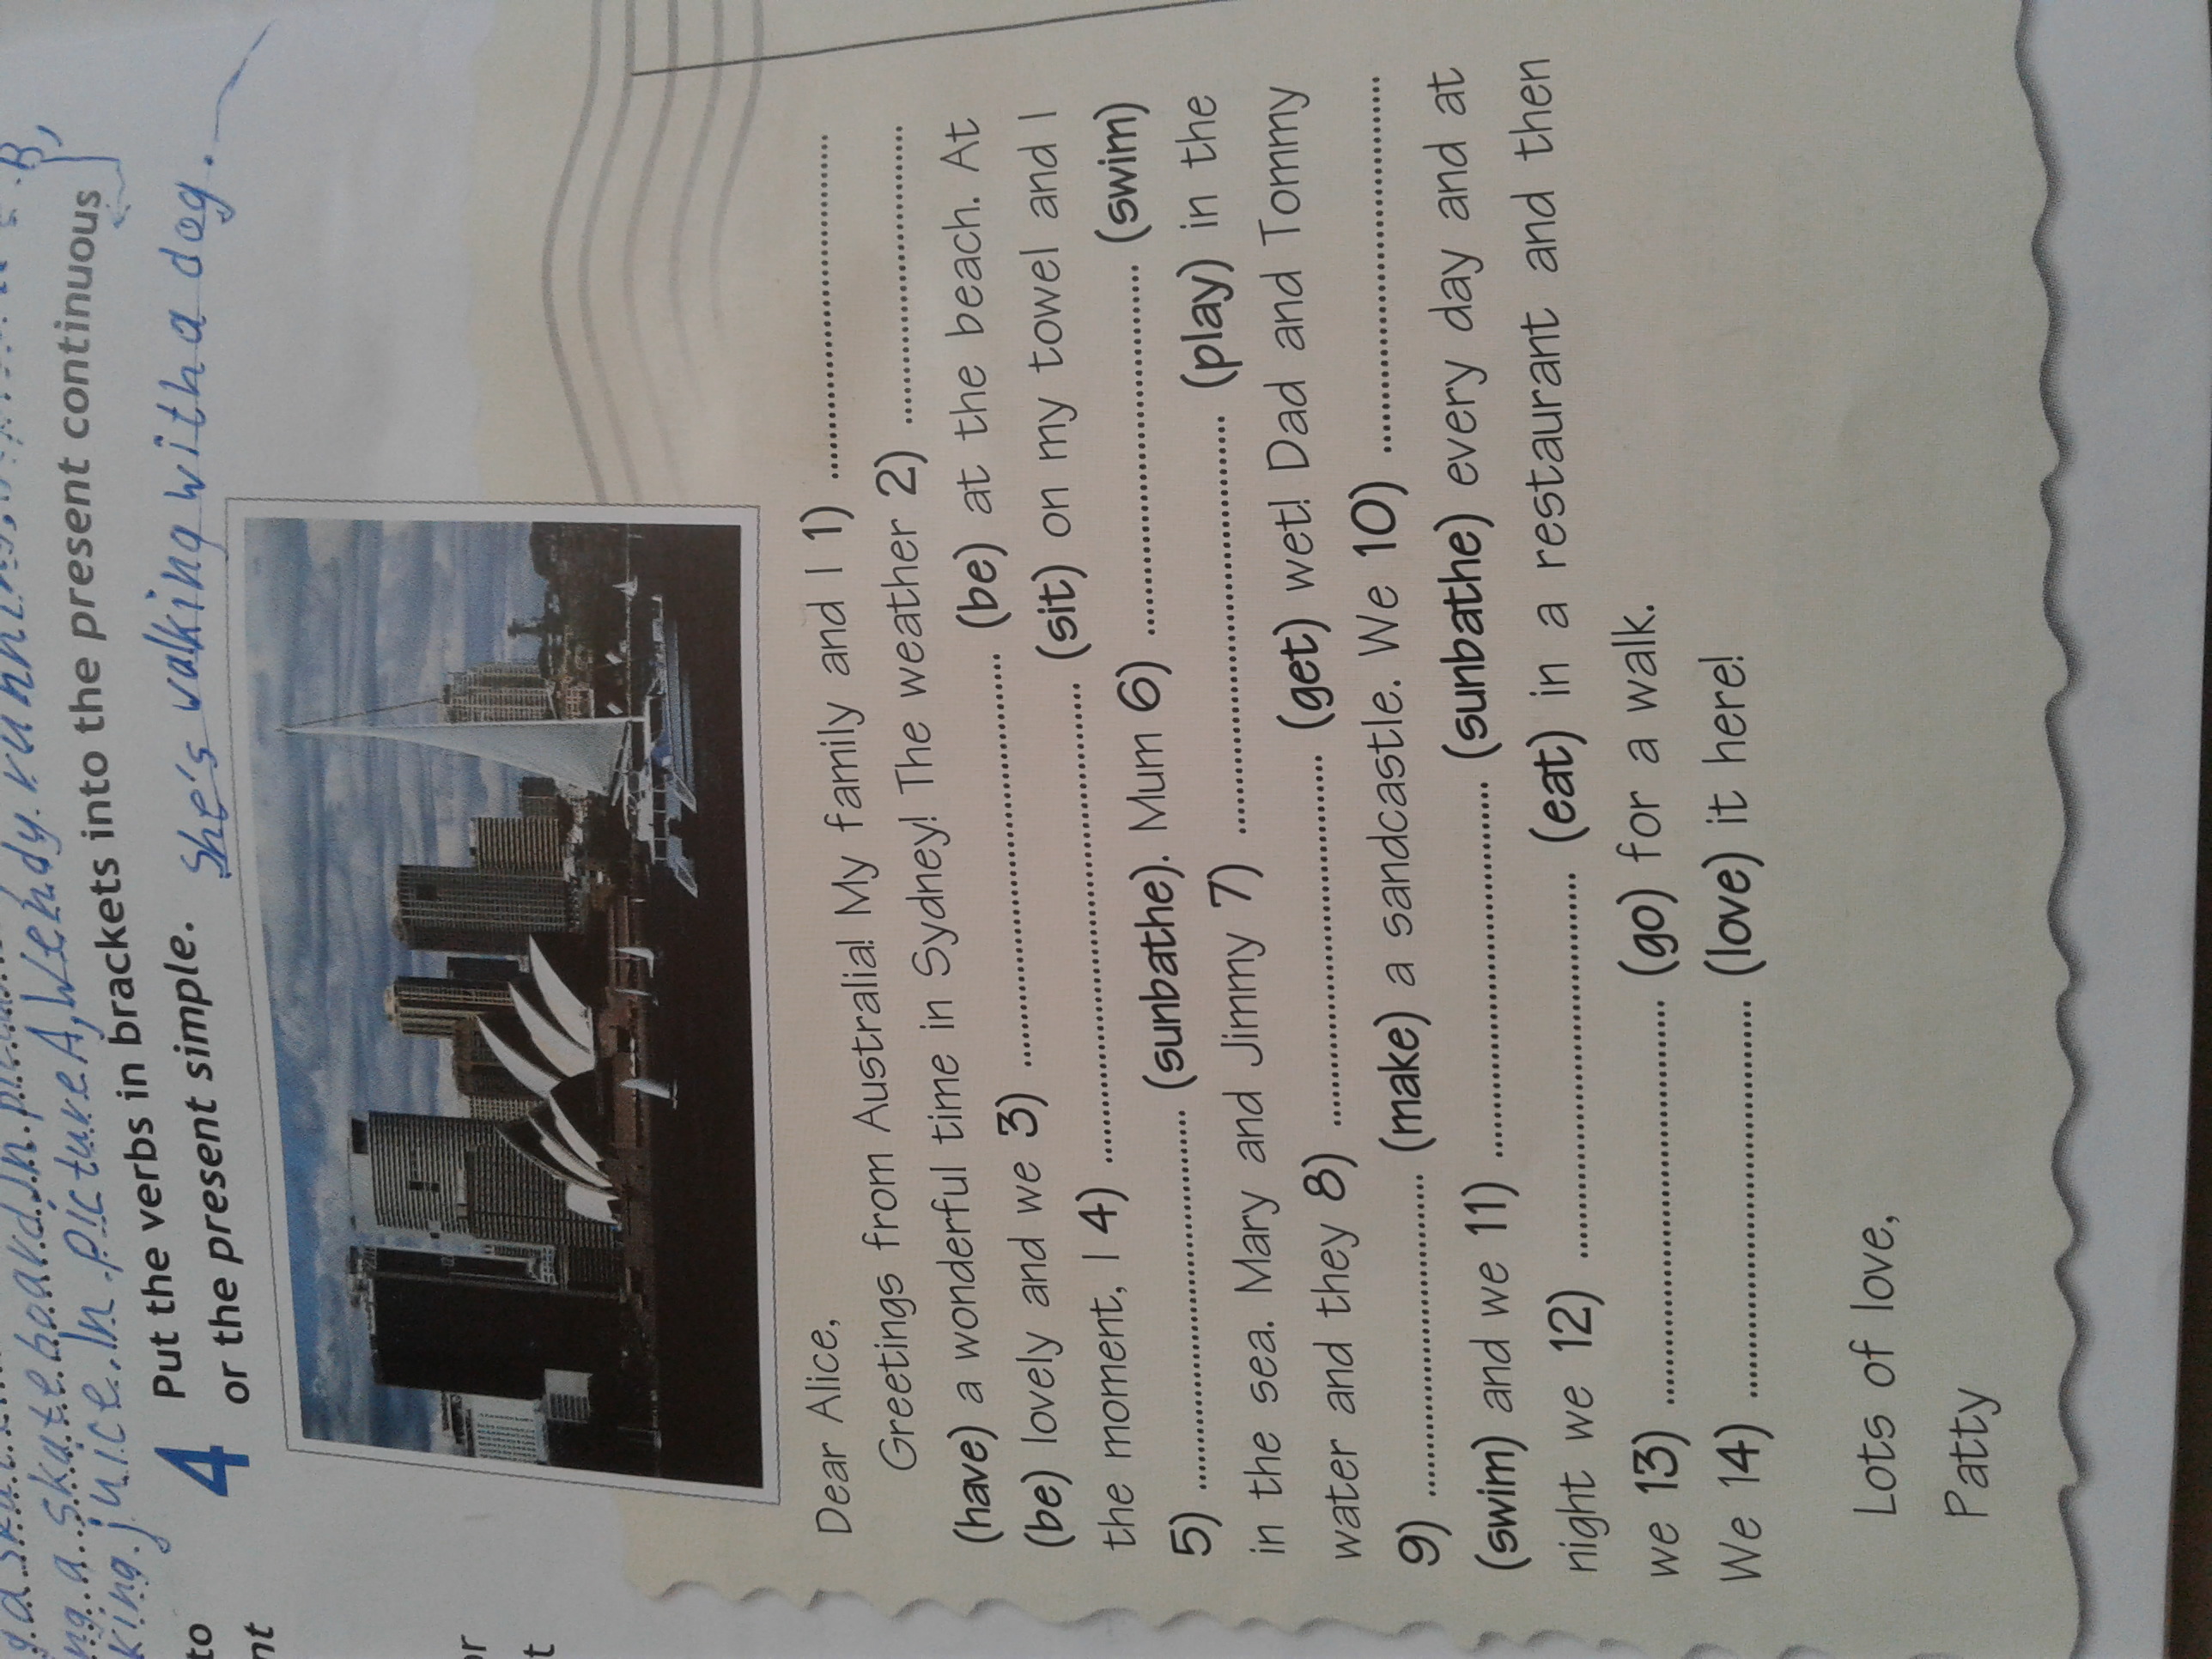 king. juice. In. picture. A, Wendy. running,
4 Put the verbs in brackets into the present continuous
or the present simple. She's walking with a dog.
to
nt
or
t
Dear Alice,
Greetings from Australia! My family and I 1) ........
(have) a wonderful time in Sydney! The weather 2) ........
(be) lovely and we 3) ........ (be) at the beach. At
the moment, I 4) ........ (sit) on my towel and I
5) ........ (sunbathe). Mum 6) ........ (swim)
in the sea. Mary and Jimmy 7) ........ (play) in the
water and they 8) ........ (get) wet! Dad and Tommy
9) ........ (make) a sandcastle. We 10) ........
(swim) and we 11) ........ (sunbathe) every day and at
night we 12) ........ (eat) in a restaurant and then
we 13) ........ (go) for a walk.
We 14) ........ (love) it here!
Lots of love,
Patty